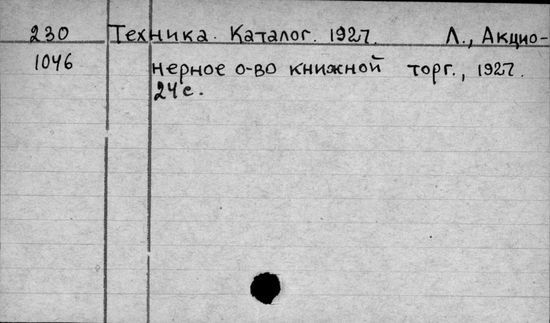 230 Техника. Каталог. 1927. Л., Акцио-
1046 нерное о-во книжной торг., 1927.
24 с.